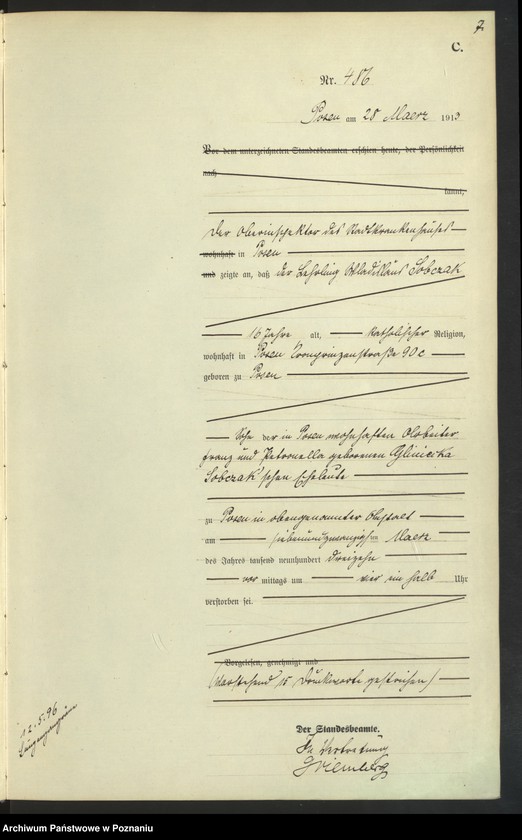 7.
C.
Nr. 486
Posen am 28 Maerz 1913
Vor dem unterzeichneten Standesbeamten erschien heute, der Persönlichkeit
nach
kannt,
Der Oberinspektor des Stadtkrankenhauses
wohnhaft in Posen
und zeigte an, daß der Lehrling Wladislaus Sobczak
16 Jahre alt, katholischer Religion,
wohnhaft in Posen Kronprinzenstraße 90 c
geboren zu Posen
Sohn der in Posen wohnhaften Arbeiter
Franz und Petronella geborenen
Sobczak'schen Eheleute
zu Posen in obengenannter Anstalt
am siebenundzwanzigsten Maerz
des Jahres tausend neunhundert dreizehn
vor mittags um vier ein halb Uhr
verstorben sei.
Vorgelesen, genehmigt und
(Vorstehend 15 Druckworte gestrichen)
Der Standesbeamte.
In Vertretung
12.5.96
Archiwum Państwowe w Poznaniu